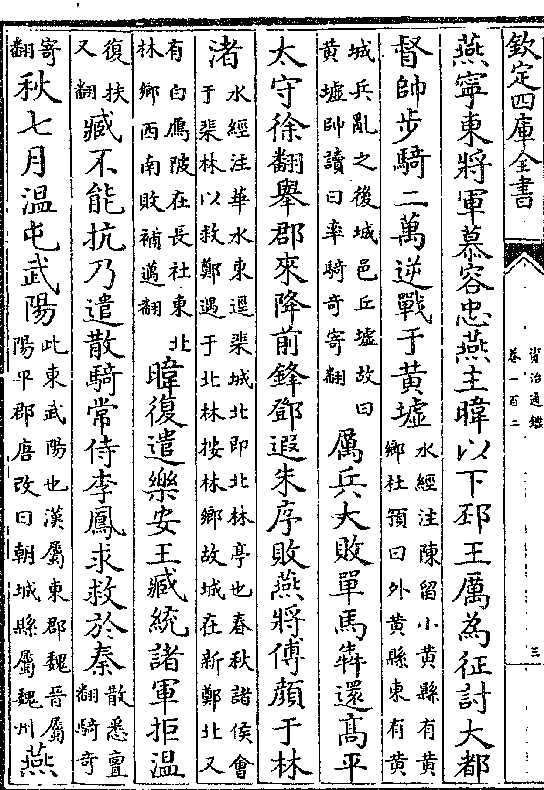 欽定四庫全書
資治通鑑
卷一百二
三
燕寧東將軍慕容忠燕主暐以下邳王厲為征討大都
督帥步騎二萬逆戰于黃墟
水經注陳留小黃縣有黃
鄉杜預曰外黃縣東有黃
城兵亂之後城邑丘墟故曰
黃墟帥讀曰率騎奇寄翻
厲兵大敗單馬犇還髙平
太守徐翻舉郡來降前鋒鄧遐朱序敗燕將傅顔于林
渚
水經注華水東逕棐城北即北林亭也春秋諸侯會
于棐林以救鄭遇于北林按林鄉故城在新鄭北又
有白鴈陂在長社東北
林鄉西南敗補邁翻
暐復遣樂安王臧統諸軍拒温
復扶
又翻
臧不能抗乃遣散騎常侍李鳳求救於秦
散悉亶
翻騎奇
寄
翻
秋七月温屯武陽
此東武陽也漢屬東郡魏晉屬
陽平郡唐改曰朝城縣屬魏州
燕